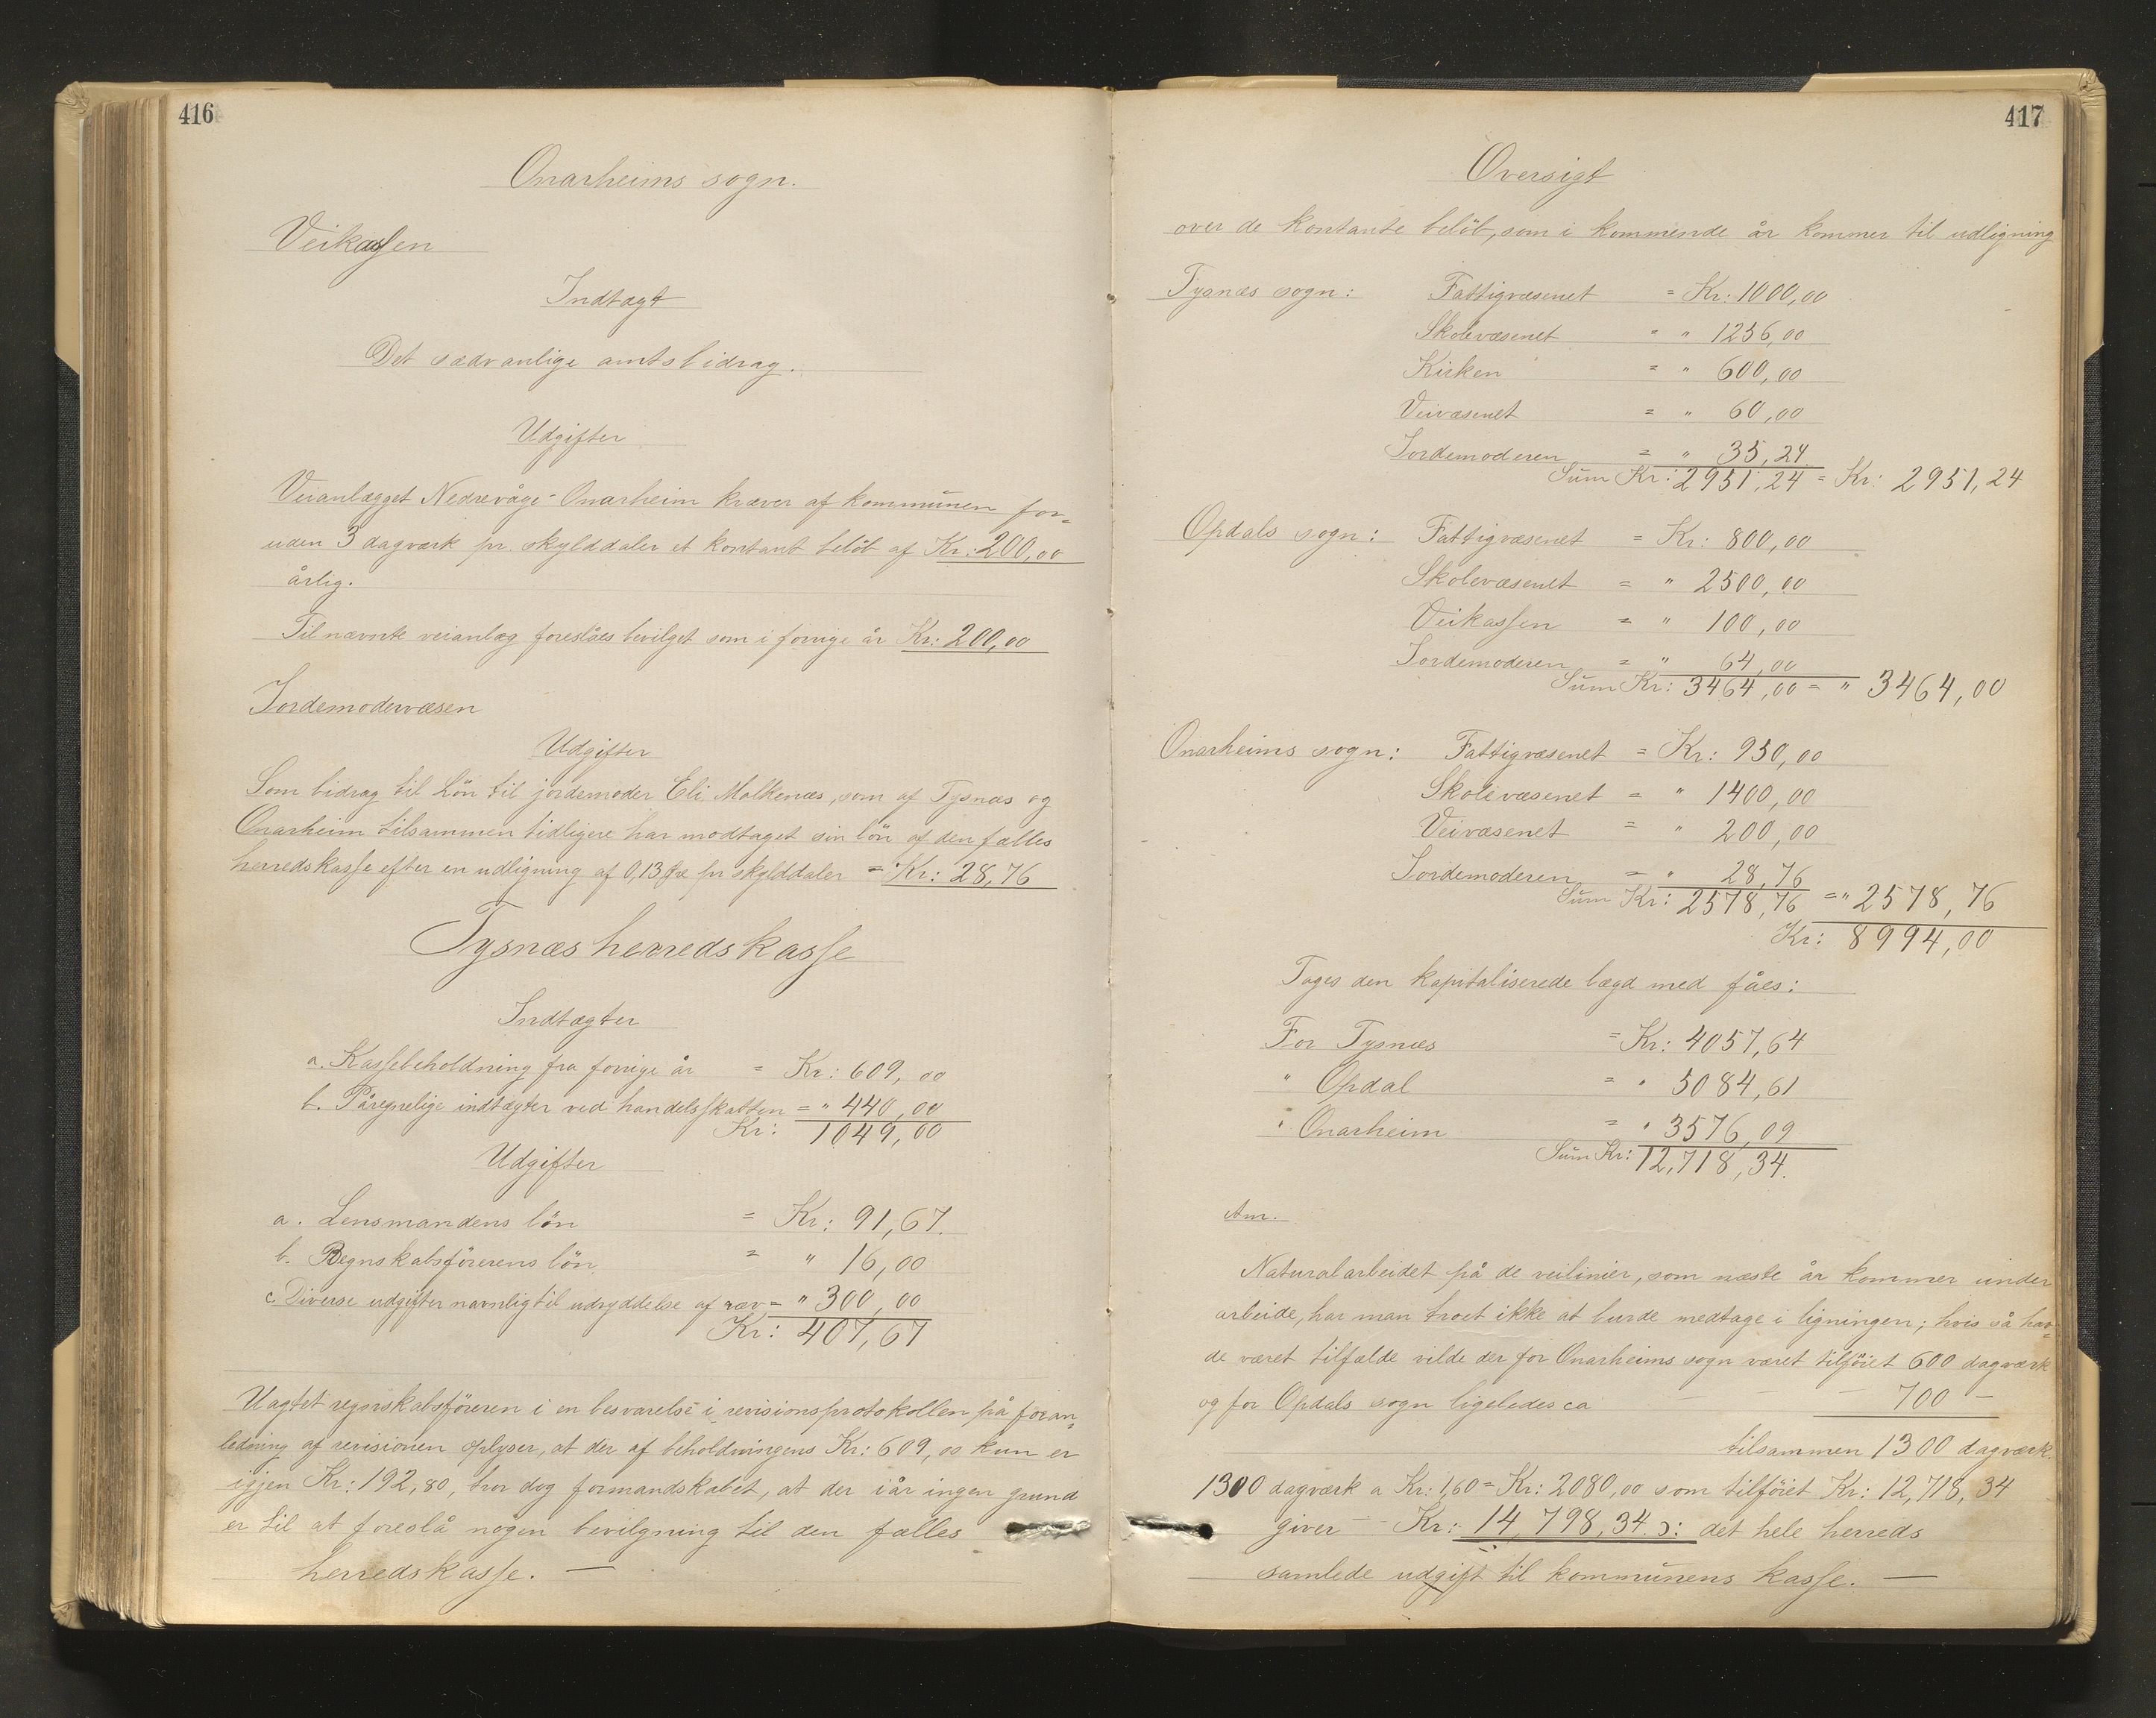 416
Onarheims sogn.
Veikassen
Indtægt
Det sædvanlige amtsbidrag.
Udgifter
Veianlægget Nedrevåge-Onarheim kræver af kommunen for-
uden 3 dagværk pr. skylddaler et kontant beløb af Kr: 200,00
årlig.
Til nævnte veianlæg foreslåes bevilget som i forrige år Kr: 200,00
Jordemodervæsen
Udgifter
Som bidrag til Løn til jordemoder Eli Malkenæs, som af Tysnæs og
Onarheim tilsammen tidligere har modtaget sin løn af den fælles
herredskasse efter en udligning af 0,13 pr skylddaler = Kr: 28,76
Tysnæs herredskasse
Indtægter
a. Kassebeholdning fra forrige år = Kr: 609,00
b. Påregnelige indtægter ved handelsskatten = " 440,00
Kr: 1049,00
Udgifter
a. Lensmandens løn = Kr: 91,67.
b. Regnskabsførerens løn = " 16,00
c. Diverse udgifter navnlig til udryddelse af ræv = " 300,00
Kr: 407,67
Uagtet regnskabsføreren i en besvarelse i revisionsprotokollen på foran-
ledning af revisionen oplyser, at der af beholdningens Kr: 609,00 kun er
igjen Kr: 192,80, tror dog formandskabet, at der i år ingen grund
er til at foreslå nogen bevilgning til den fælles
herredskasse. —
417
Oversigt
over de kontante beløb, som i kommende år kommer til udligning
Tysnæs sogn: Fattigvæsenet = Kr: 1000,00
Skolevæsenet = " 1256,00
Kirken = " 600,00
Veivæsenet = " 60,00
Jordemoderen = " 35,24
Sum Kr: 2951,24 = Kr: 2951,24
Opdals sogn: Fattigvæsenet = Kr: 800,00
Skolevæsenet = " 2500,00
Veikassen = " 100,00
Jordemoderen = " 64,00
Sum Kr: 3464,00 = " 3464,00
Onarheims sogn: Fattigvæsenet = Kr: 950,00
Skolevæsenet = " 1400,00
Veivæsenet = " 200,00
Jordemoderen = " 28,76
Sum Kr: 2578,76 = " 2578,76
Kr: 8994,00
Tages den kapitaliserede lægd med fåes:
For Tysnæs = Kr: 4057,64
" Opdal = " 5084,61
" Onarheim = " 3576,09
Sum Kr: 12,718,34.
Anr.
Naturalarbeidet på de veilinier, som næste år kommer under
arbeide, har man troet ikke at burde medtage i ligningen; hvis så hav-
de været tilfælde vilde der for Onarheims sogn været tilføiet 600 dagværk
og for Opdals sogn ligeledes ca — — — 700 —
tilsammen 1300 dagværk.
1300 dagværk a Kr: 1,60 = Kr: 2080,00 som tilføiet Kr: 12,718,34
giver — Kr: 14,798,34 ɔ: det hele herreds
— samlede udgift til kommunens kasse. —